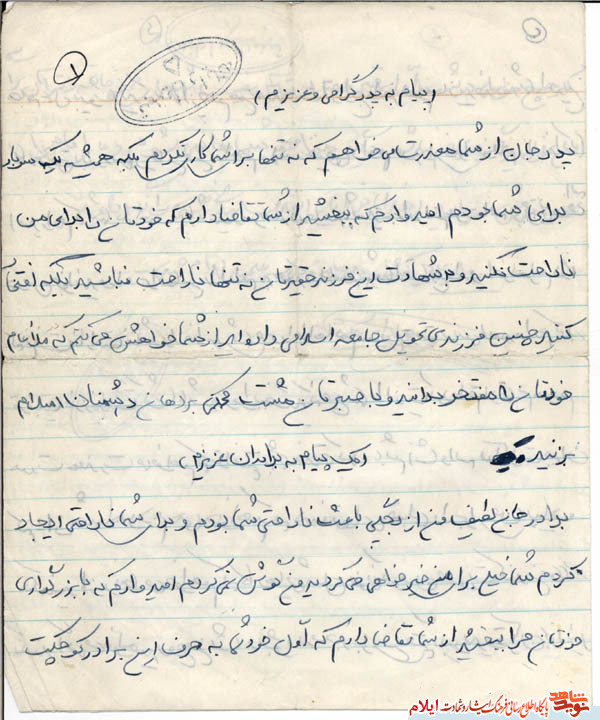 ۱
(پیام به پدر گرامی و عزیزم)
پدر جان از شما معذرت می خواهم که نه تنها برای شما کاری نکردم بلکه همیشه یک سربار
برای شما بودم امیدوارم که ببخشید از شما تقاضا دارم که خودتان را برای من
ناراحت نکنید و به شهادت این فرزند حقیرتان نه تنها ناراحت نباشید بلکه افتخار
کنید چنین فرزندی تحویل جامعه اسلامی داده اید از شما خواهش می کنم که مادام
خودتان را مفتخر بدانید و با صبرتان مشت محکمی بر دهان دشمنان اسلام
بزنید
(یک پیام به برادران عزیزم)
برادر جان لطیف من از بچگی باعث ناراحتی شما بودم و برای شما ناراحتی ایجاد
کردم شما خیلی برای من خیرخواهی می کردید من گوش نمی کردم امیدوارم که با بزرگواری
خودتان مرا ببخشید از شما تقاضا دارم که اول خود شما به حرف این برادر کوچکت
نوید شاهد
پایگاه اطلاع رسانی فرهنگ ایثار و شهادت ایلام